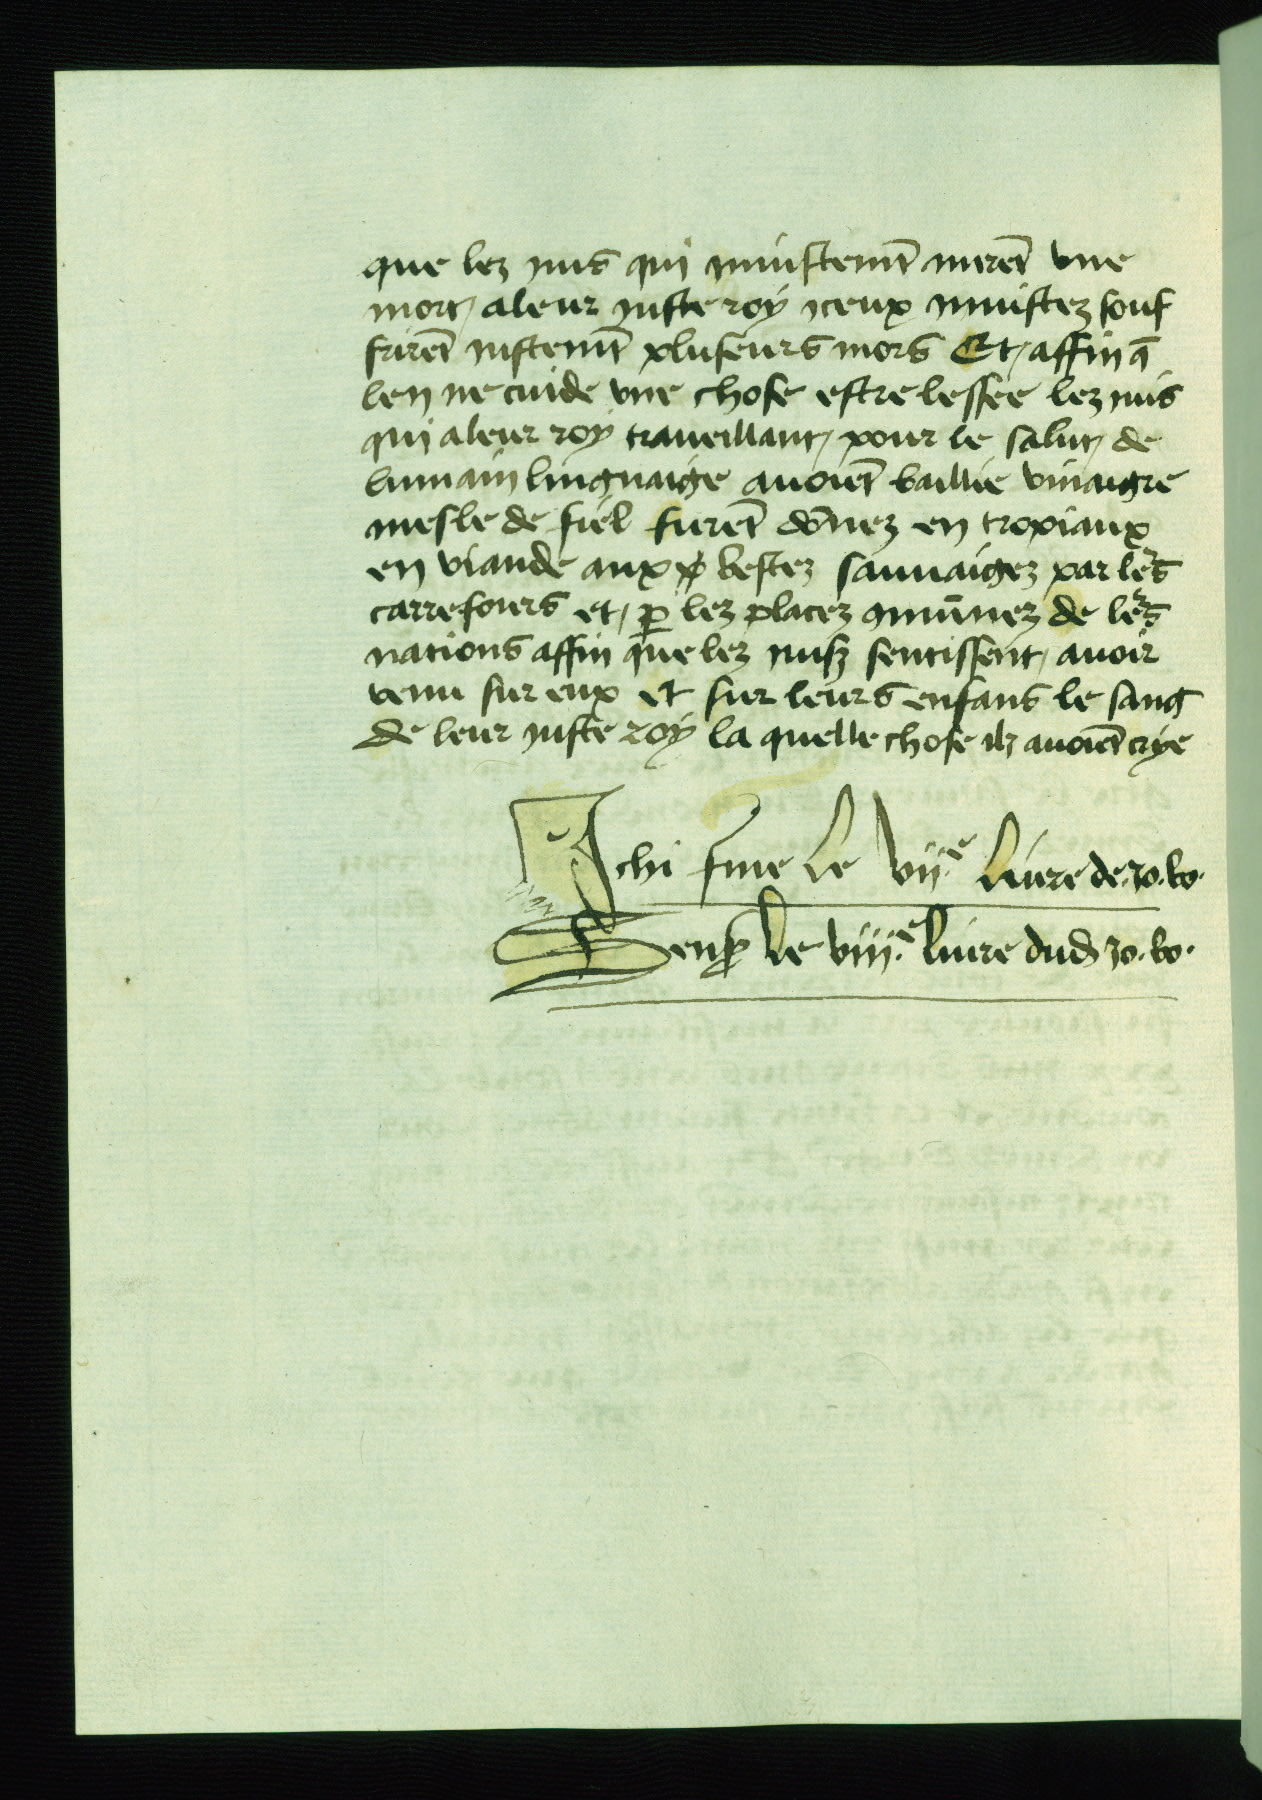 que lez juis qui iniustemēt mirēt vne
mort a leur juste roy iceux iniustez souf
frirēt justemēt pluseurs mors Et affin q̄
len ne cuide vne chose estre lessee lez juis
qui a leur roy traveillant pour le salut de
lumain linguaige avoiēt baillie vinaigre
mesle de fiel furēt dōnez en tropiaux
en viande aux bestez sauuaigez par leurs
carrefours et p̱ lez placez ꝯmūnez de leurs
nations affin que lez juifz sentissent avoir
venu sur eux et sur leurs enfans le sang
de leur juste roy la quelle chose ilz avoiēt crye
Ichi fine le vij.e livre de .Jo. bo.
Sensꝰ le viij.e livre dud Jo. bo.